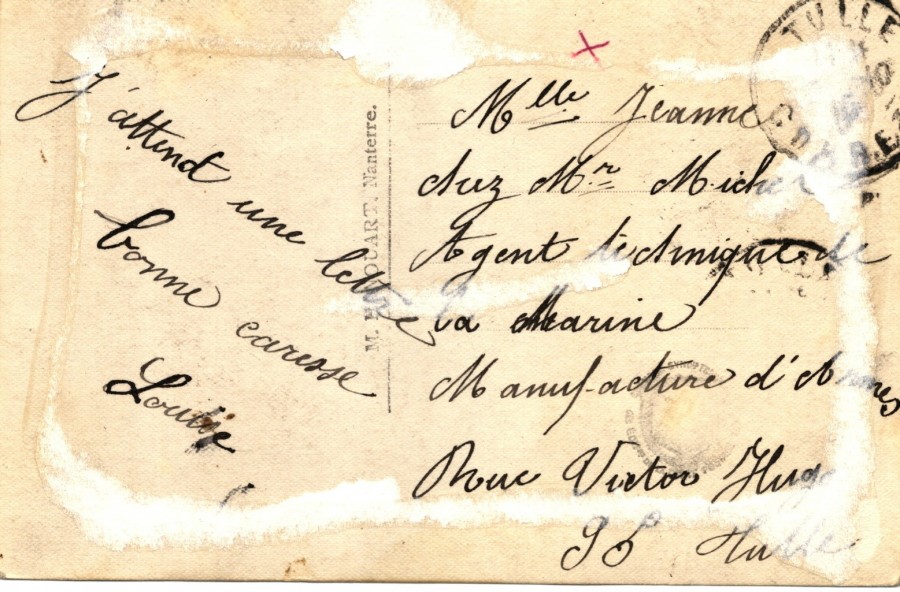 J'attend une lettre
bonne caresse
Louise
M. HOUART. Nanterre.
TULLE
CORRÈZE
Mlle Jeanne
chez Mr Michel
Agent technique de
la Marine
Manufacture d'Armes
Rue Victor Hugo
Tulle